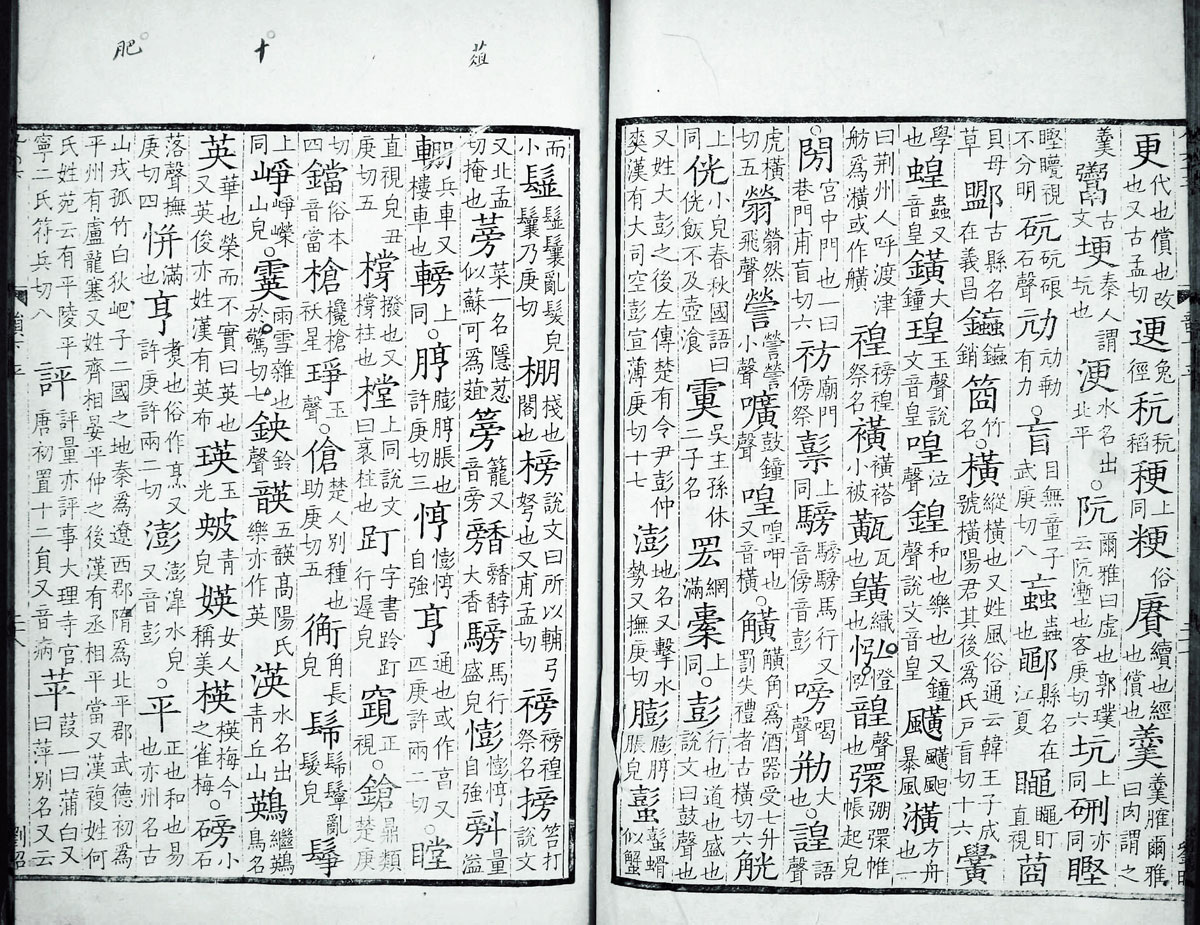 肥 十 葅
更代也償也改也又古孟切 䢚兔徑 秔秔稻 稉上同 粳俗 賡續也經也償也 羹羹臛爾雅曰肉謂之
羹 古文 埂秦人謂坑也 浭水名出北平 ○阬爾雅曰虛也郭璞云阬壍也客庚切六 坑上同 硎亦同
瞪視不分明 砊砊硍石聲 劥劥勭有力 ○盲目無童子武庚切八 蝱蟲也 鄳縣名在江夏 盯直視 莔
貝母草 盟 古縣名在義昌 銷 竹名 ○橫縱橫也又姓風俗通云韓王子成號橫陽君其後爲氏戶盲切十六 黌
學也 蝗蟲又音皇 鐄大鐘 瑝玉聲說文音皇 喤泣聲 鍠和也樂也又鐘聲說文音皇 颮暴風 潢方舟也一
曰荊州人呼渡津舫爲潢或作橫 祭名 褡小被 瓦也 織也 憕也 韹聲也 彋弸彋帷帳起皃
○閍宮中門也一曰巷門甫盲切六 祊廟門傍祭 上同 騯騯騯馬行又音傍音彭 嗙喝聲 大力 ○諻語聲
虎橫切五 然飛聲 謍謍謍小聲 鼓鐘聲 喤喤呷也又音橫 ○觵觵角爲酒器受七升罰失禮者古橫切六 觥
上同 侊小皃春秋國語曰侊飯不及壺飡 吳主孫休二子名 網滿 上同 ○彭行也道也盛也說文曰鼓聲也
又姓大彭之後左傳楚有令尹彭仲爽漢有大司空彭宣薄庚切十七 澎地名又擊水勢又撫庚切 膨膨脝脹皃 蟚蟚蜎似蟹
而小 鬔鬔鬤亂髮皃鬤乃庚切 棚棧也閣也 榜說文曰所以輔弓弩也又甫孟切 祭名 搒笞打說文
又北孟切掩也 蒡菜一名隱荵似蘇可爲葅 篣籠又音旁 馞大香 騯馬行盛皃 憉憉悙自強 量溢
輣兵車又樓車也 上同 ○脝膨脝脹也許庚切三 悙憉悙自強 亨通也或作亯又匹庚許兩二切 ○瞠
直視皃丑庚切五 撐撥也又撐柱也 樘上同說文曰衺柱也 字書跉 行遑皃 竀正視 ○鎗鼎類楚庚
切四 鐺俗本音當 槍欃槍祅星 琤玉聲 ○傖楚人別種也助庚切五 角長皃 鬇鬡亂髮皃
上同 崢崢嶸山皃 ○霙雨雪雜也於驚切七 鉠鈴聲 韺五韺高陽氏樂亦作英 渶水名出青丘山 鶧繼鶧鳥名
英華也榮而不實曰英也又英俊亦姓漢有英布 瑛玉光 青皃 媖女人美稱 楧楧梅今之雀梅 ○磅小石
落聲撫庚切四 恲滿也 亨煑也俗作烹又許庚許兩二切 澎澎濞水皃又音彭 ○平正也和也易也亦州名古
山戎孤竹白狄肥子二國之地秦爲遼西郡隋爲北平郡武德初爲平州有盧龍塞又姓齊相晏平仲之後漢有丞相平當又漢複姓何
氏姓苑云有平陵平寧二氏符兵切八 評評量亦評事大理寺官唐初置十二員又音病 苹葭一曰蒲白又曰萍別名又云
劉昭